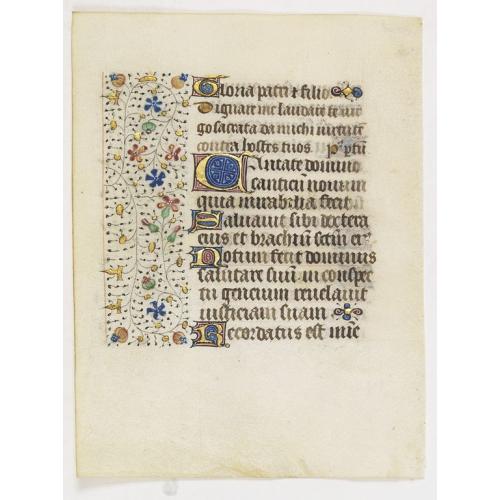 Gloria patri et filio
Dignare me laudare te uir
go sacrata da michi uirtutē
contra hostes tuos. ps̄
Cantate domino
canticū nouum
quia mirabilia fecit
Saluauit sibi dextera
eius et brachiū sctm̄ ei
Notum fecit dominus
salutare suū in conspe
ctu gencium reuelauit
iusticiam suam
Recordatus est mīe